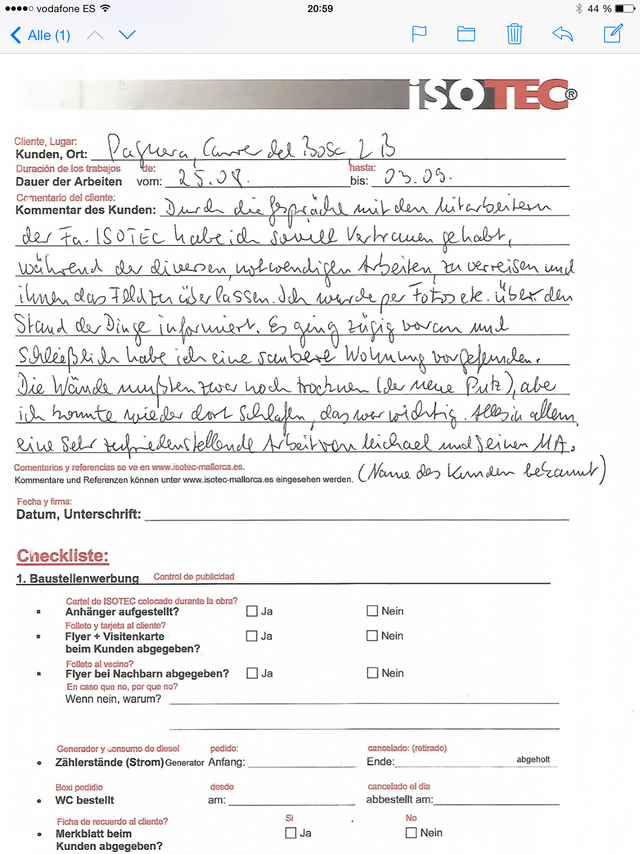 vodafone ES 20:59 44 %
Alle (1)
ISOTEC®
Cliente, Lugar:
Kunden, Ort: Paguera, Carrer del Bosc, 2 B
Duración de los trabajos de: hasta:
Dauer der Arbeiten vom: 25.08. bis: 03.09.
Comentario del cliente:
Kommentar des Kunden: Durch die Gespräche mit den Mitarbeitern
der Fa. ISOTEC habe ich soviel Vertrauen gehabt,
während der diversen, notwendigen Arbeiten, zu verreisen und
ihnen das Feld zu überlassen. Ich wurde per Fotos etc. über den
Stand der Dinge informiert. Es ging zügig voran und
schließlich habe ich eine saubere Wohnung vorgefunden.
Die Wände mußten zwar noch trocknen (der neue Putz), aber
ich konnte wieder dort schlafen, das war wichtig. Alles in allem,
eine sehr zufriedenstellende Arbeit von Michael und seinen MA.
Comentarios y referencias se ve en www.isotec-mallorca.es.
(Name des Kunden bekannt)
Kommentare und Referenzen können unter www.isotec-mallorca.es eingesehen werden.
Fecha y firma:
Datum, Unterschrift:
Checkliste:
1. Baustellenwerbung Control de publicidad
Cartel de ISOTEC colocado durante la obra?
Anhänger aufgestellt? Ja Nein
Folleto y tarjeta al cliente?
Flyer + Visitenkarte Ja Nein
beim Kunden abgegeben?
Folleto al vecino?
Flyer bei Nachbarn abgegeben? Ja Nein
En caso que no, por que no?
Wenn nein, warum?
Generador y consumo de diesel pedido: cancelado: (retirado)
Zählerstände (Strom) Generator Anfang: Ende: abgeholt
Boxi pedidio desde cancelado el dia
WC bestellt am: abbestellt am:
Ficha de recuerdo al cliente? Si No
Merkblatt beim Ja Nein
Kunden abgegeben?